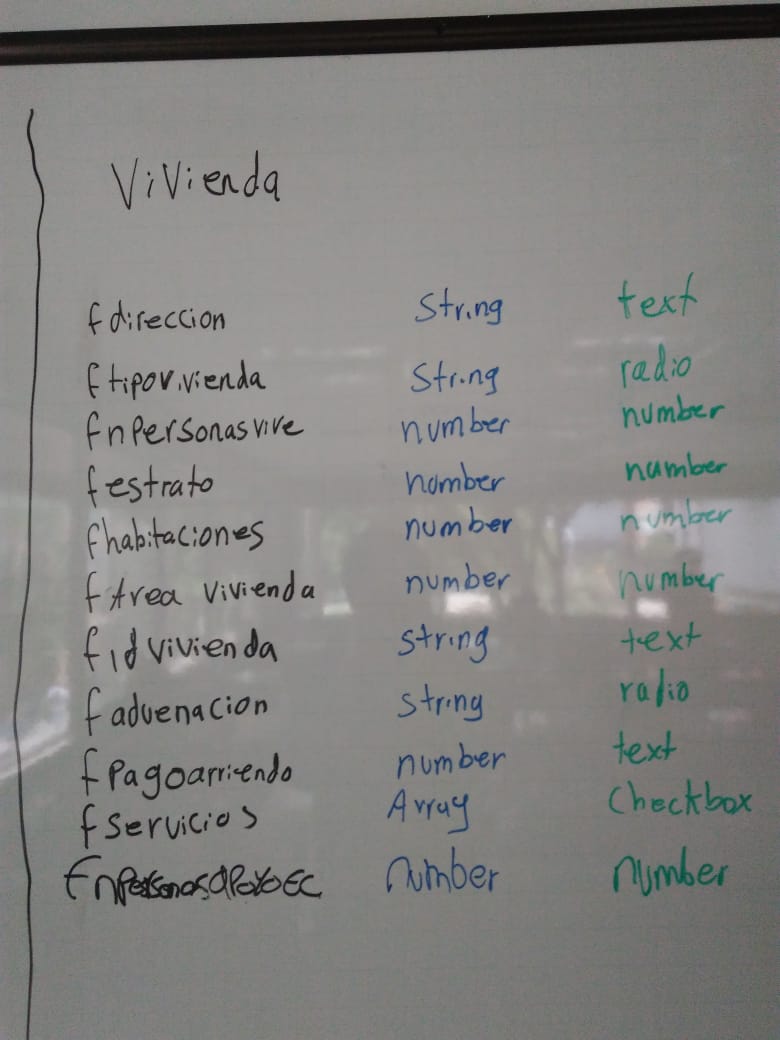 Vivienda
fdireccion String text
ftipovivienda String radio
fnPersonasvive number number
festrato number number
fhabitaciones number number
fArea vivienda number number
fidvivienda string text
faduenacion string radio
fPagoarriendo number text
fservicios Array Checkbox
fnPersonasapoyoEC number number